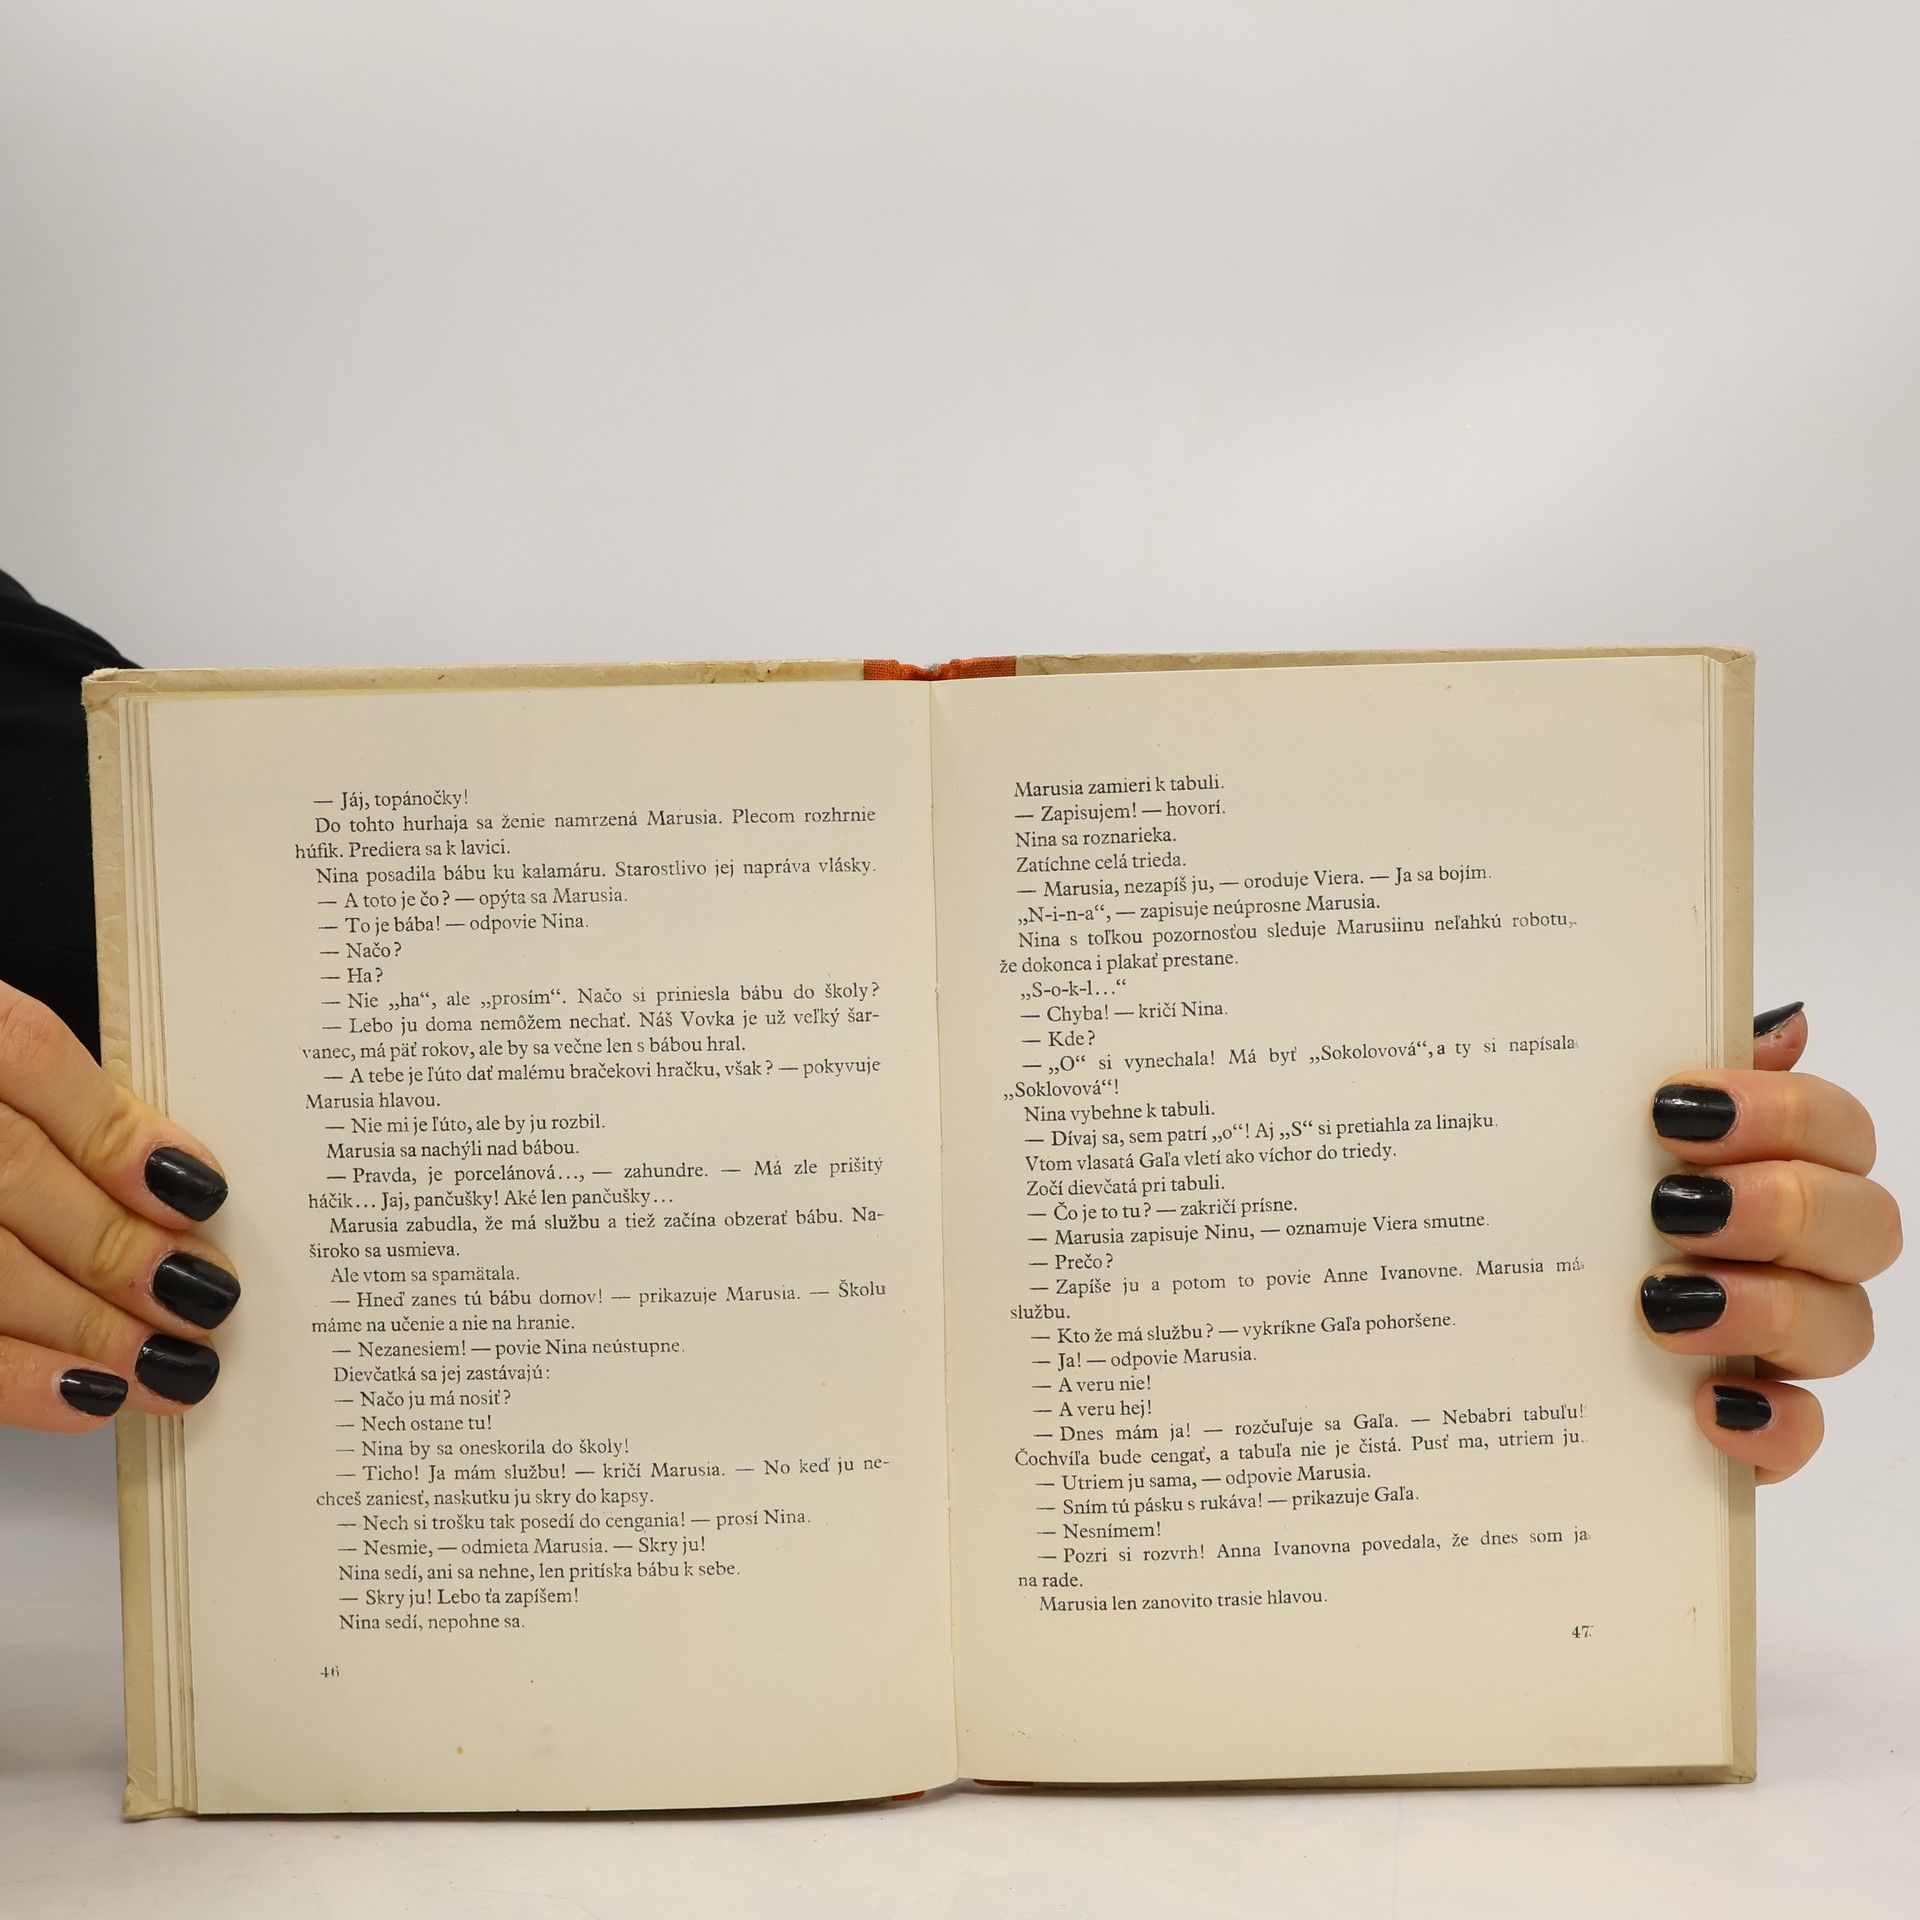 — Jáj, topánočky!
Do tohto hurhaja sa ženie namrzená Marusia. Plecom rozhrnie
húfik. Prediera sa k lavici.
Nina posadila bábu ku kalamáru. Starostlivo jej napráva vlásky.
— A toto je čo? — opýta sa Marusia.
— To je bába! — odpovie Nina.
— Načo?
— Ha?
— Nie „ha“, ale „prosím“. Načo si priniesla bábu do školy?
— Lebo ju doma nemôžem nechať. Náš Vovka je už veľký šar-
vanec, má päť rokov, ale by sa večne len s bábou hral.
— A tebe je ľúto dať malému bračekovi hračku, však? — pokyvuje
Marusia hlavou.
— Nie mi je ľúto, ale by ju rozbil.
Marusia sa nachýli nad bábou.
— Pravda, je porcelánová..., — zahundre. — Má zle prišitý
háčik... Jaj, pančušky! Aké len pančušky...
Marusia zabudla, že má službu a tiež začína obzerať bábu. Na-
široko sa usmieva.
Ale vtom sa spamätala.
— Hneď zanes tú bábu domov! — prikazuje Marusia. — Školu
máme na učenie a nie na hranie.
— Nezanesiem! — povie Nina neústupne.
Dievčatká sa jej zastávajú:
— Načo ju má nosiť?
— Nech ostane tu!
— Nina by sa oneskorila do školy!
— Ticho! Ja mám službu! — kričí Marusia. — No keď ju ne-
chceš zaniesť, naskutku ju skry do kapsy.
— Nech si trošku tak posedí do cengania! — prosí Nina.
— Nesmie, — odmieta Marusia. — Skry ju!
Nina sedí, ani sa nehne, len pritíska bábu k sebe.
— Skry ju! Lebo ťa zapíšem!
Nina sedí, nepohne sa.
46
Marusia zamieri k tabuli.
— Zapisujem! — hovorí.
Nina sa roznarieka.
Zatíchne celá trieda.
— Marusia, nezapíš ju, — oroduje Viera. — Ja sa bojím.
„N-i-n-a“, — zapisuje neúprosne Marusia.
Nina s toľkou pozornosťou sleduje Marusiinu neľahkú robotu,
že dokonca i plakať prestane.
„S-o-k-l...“
— Chyba! — kričí Nina.
— Kde?
— „O“ si vynechala! Má byť „Sokolovová“, a ty si napísala
„Soklovová“!
Nina vybehne k tabuli.
— Dívaj sa, sem patrí „o“! Aj „S“ si pretiahla za linajku.
Vtom vlasatá Gaľa vletí ako víchor do triedy.
Zočí dievčatá pri tabuli.
— Čo je to tu? — zakričí prísne.
— Marusia zapisuje Ninu, — oznamuje Viera smutne.
— Prečo?
— Zapíše ju a potom to povie Anne Ivanovne. Marusia má
službu.
— Kto že má službu? — vykríkne Gaľa pohoršene.
— Ja! — odpovie Marusia.
— A veru nie!
— A veru hej!
— Dnes mám ja! — rozčuľuje sa Gaľa. — Nebabri tabuľu!
Čochvíľa bude cengať, a tabuľa nie je čistá. Pusť ma, utriem ju.
— Utriem ju sama, — odpovie Marusia.
— Sním tú pásku s rukáva! — prikazuje Gaľa.
— Nesnímem!
— Pozri si rozvrh! Anna Ivanovna povedala, že dnes som ja
na rade.
Marusia len zanovito trasie hlavou.
47